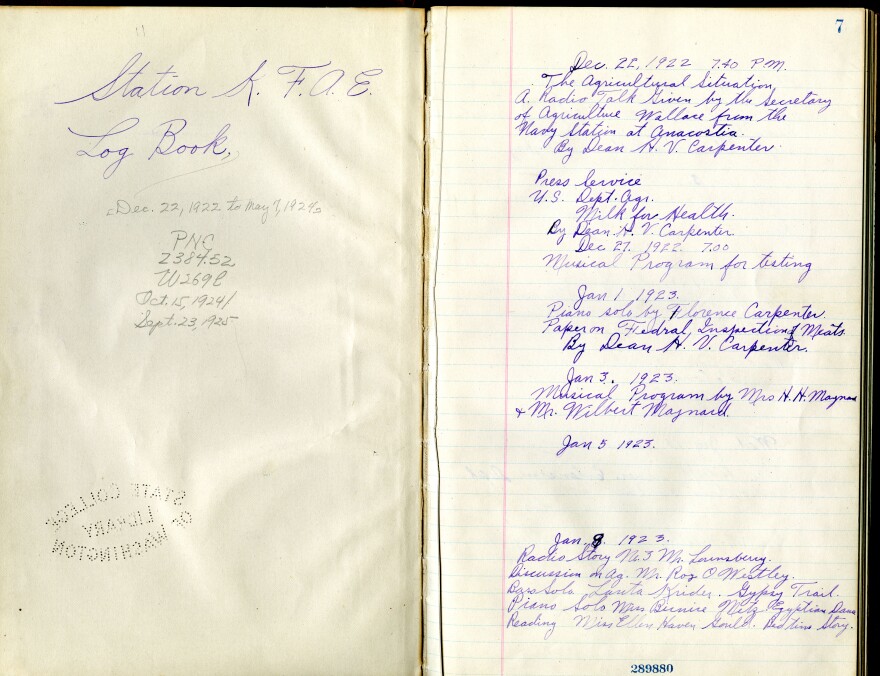 Station K. F. A. E.
Log Book,
Dec. 22, 1922 to May 7, 1924
PNC
Z384.52
W269l
Oct. 15, 1924/
Sept. 23, 1925
STATE COLLEGE
LIBRARY
OF WASHINGTON
7
Dec. 22, 1922 7.40 P.M.
The Agricultural Situation
A. Radio Talk Given by the Secretary
of Agriculture Wallace from the
Navy Station at Anacostia.
By Dean H. V. Carpenter
Press Service
U.S. Dept. Agr.
Milk for Health.
By Dean. H. V. Carpenter.
Dec 27, 1922. 7.00
Musical Program for testing
Jan 1 1923.
Piano solo by Florence Carpenter.
Paper on Fedral Inspection of Meats.
By Dean H. V. Carpenter.
Jan 3. 1923.
Musical Program by Mrs H. H. Maynard
& Mr. Wilbert Maynard.
Jan 5 1923.
Jan. 8. 1923.
Radio Story No. 3 Mr. Lounsberry.
Discussion on Ag. Mr. Roy O Westley.
Solo Krider. Gypsy Trail.
Piano Solo Miss Bernice Metz Egyptian Dance
Reading Miss Ellen Haven Gould. Bedtime Story.
289880